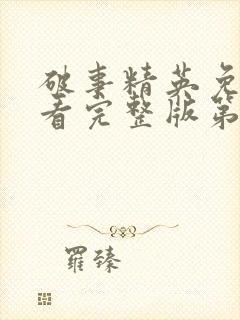 破事精英免
看完整版第
羅臻